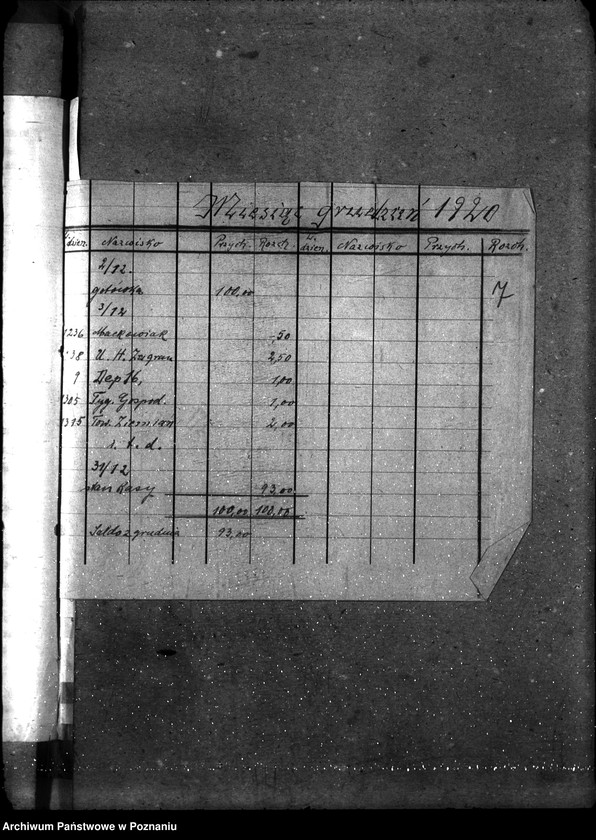 Miesiąc grudzień 1920
L. dzien. Nazwisko Przych. Rozch. L. dzien. Nazwisko Przych. Rozch.
2/12.
gotówka 100,00 7
3/12
1236 Maćkowiak -,50
38 U. H. 2,50
9 Dep 16, 1,00
1305 Tyg. Gospod. 1,00
1315 Tow. Ziemian 2,00
i. t. d.
31/12
stan Kasy 93,00
100,00 100,00
Saldo z grudnia 93,00
Archiwum Państwowe w Poznaniu